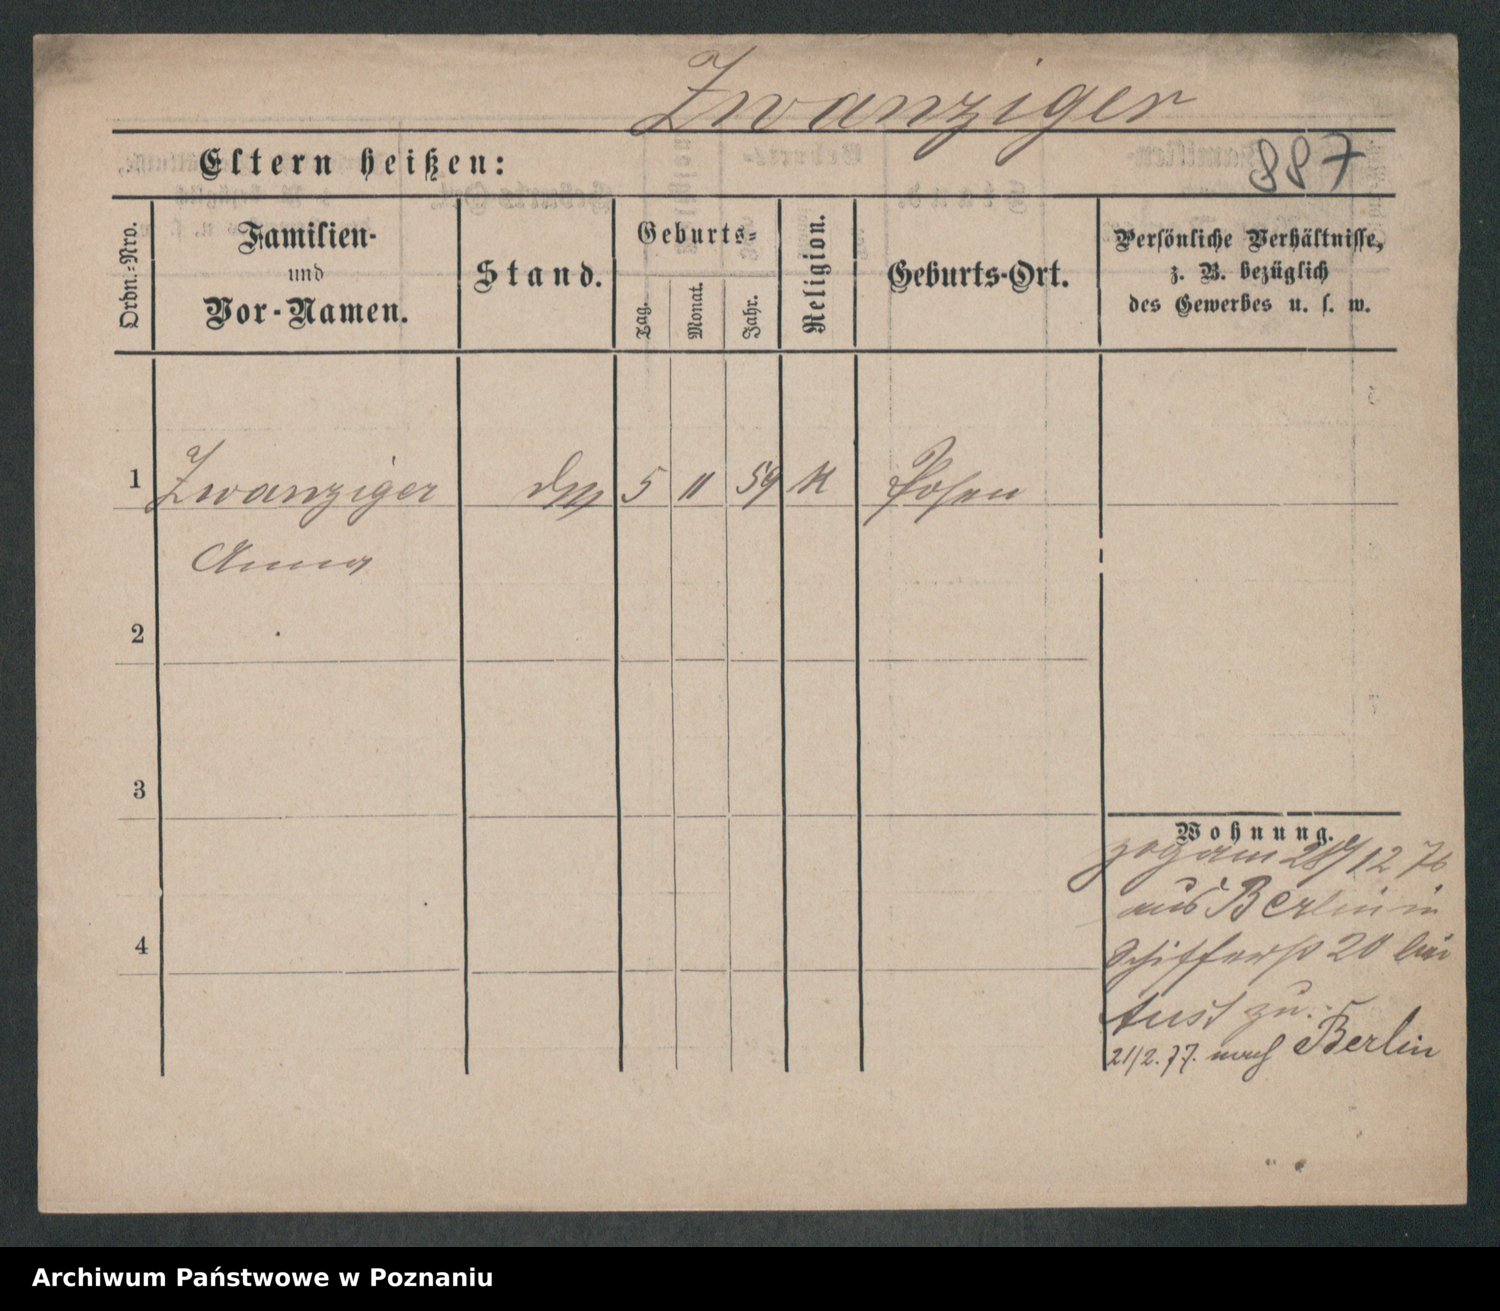 Zwanziger
887
Eltern heißen:
Ordn.-Nro.
Familien-
und
Vor-Namen.
Stand.
Geburts-
Tag.
Monat.
Jahr.
Religion.
Geburts-Ort.
Persönliche Verhältnisse,
z. B. bezüglich
des Gewerbes u. s. w.
1 Zwanziger 5 11 59 K Posen
Anna
2
3
4
Wohnung.
zog am 28/12 76
aus Berlin in
Schifferstr 20 bei
zu.
21/2.77. nach Berlin
Archiwum Państwowe w Poznaniu